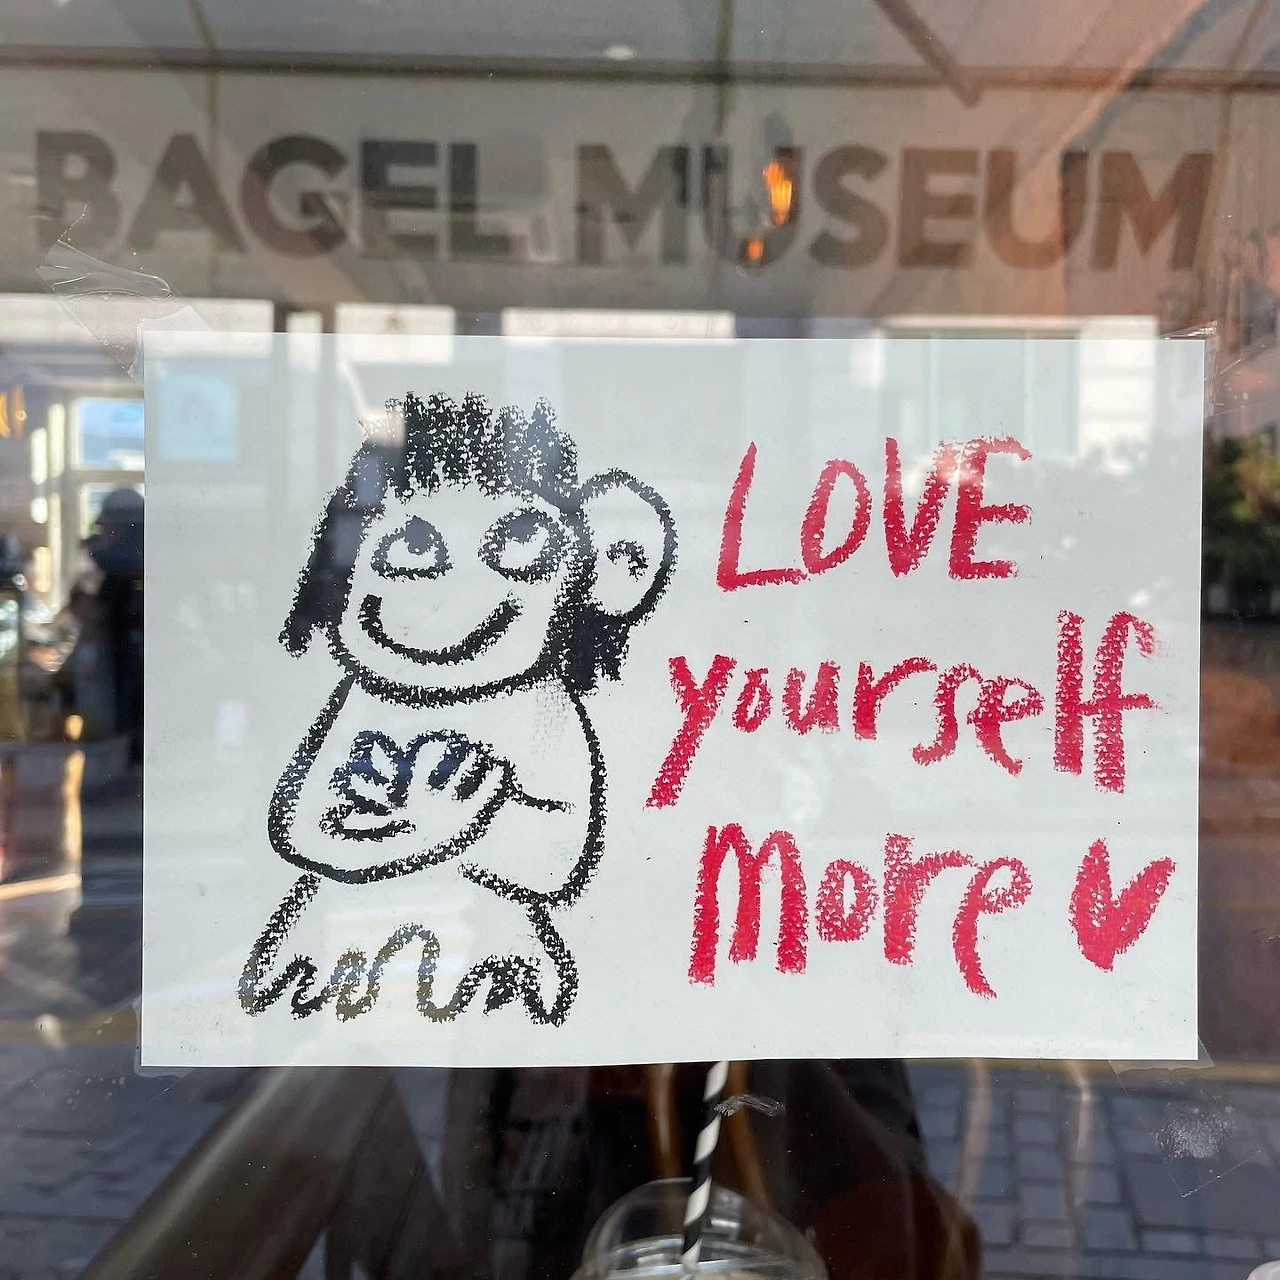 BAGEL MUSEUM
LOVE
yourself
more